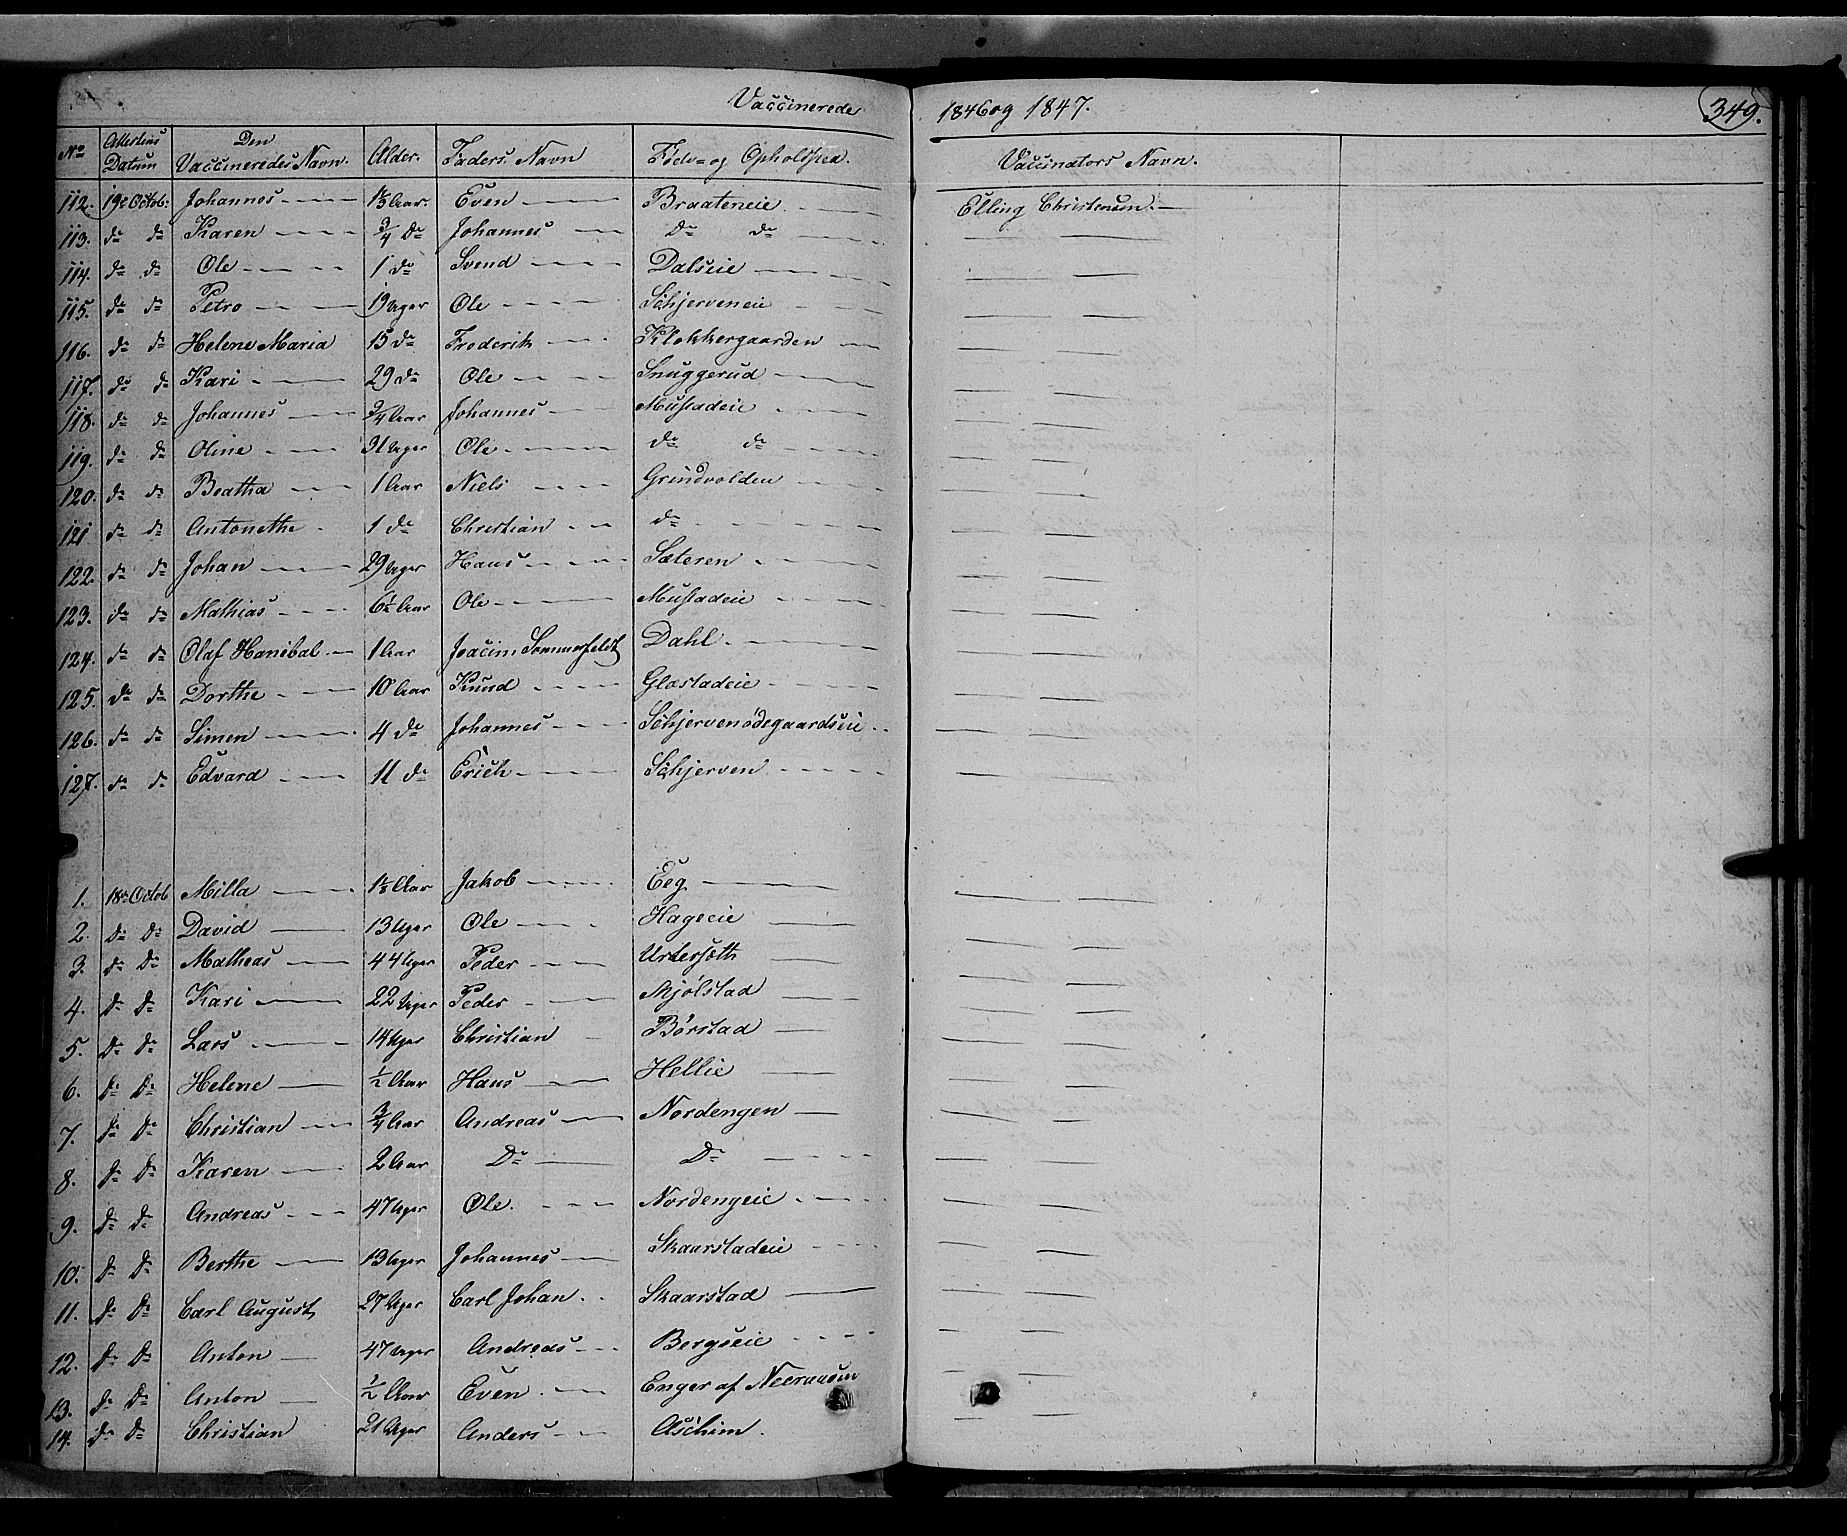 Vaccinerede 1846 og 1847. 349.
No Attestens Datum Den Vaccineredes Navn. Alder. Faders Navn Føde- og Opholdsted. Vaccinators Navn.
112. 19de Octob: Johannes Aar Even Braateneie Elling Christensen.
113. do do Karen 3/4 do Johannes do do
114. do do Ole 1 do Svend Dalseie
115. do do Petro 19 Uger Ole Schjerveneie
116. do do Helene Maria 15 do Frederik Klokkergaarden
117. do do Kari 29 do Ole Snuggerud
118. do do Johannes 3/4 Aar Johannes Mustadeie
119. do do Oline 31 Uger Ole do do
120. do do Beatha 1 Aar Niels Grindvolden
121 do do Antonethe 1 do Christian do
122. do do Johan 29 Uger Hans Sæteren
123. do do Mathias 6½ Aar Ole Mustadeie
124. do do Olaf Hanibal 1 Aar Joacim Sommerfeldt Dahl
125. do do Dorthe 10 Aar Knud Glæstadeie
126. do do Simen 4 do Johannes Schjervenødegaardseie
127. do do Edvard 11 do Erich Schjerven
1. 18de Octob Milla Aar Jakob Eeg
2. Do Do David 13 Uger Ole Hageeie
3. Do Do Matheas 44 Uger Peder
4. Do Do Kari 22 Uger Peder Mjølstad
5. Do Do Lars 14 Uger Christian Børstad
6. Do Do Helene ½ Aar Hans Hellie
7. Do Do Christian 3/4 Aar Andreas Nordengen
8. Do Do Karen 2 Aar Do Do
9. Do Do Andreas 47 Uger Ole Nordengeie
10. Do Do Berthe 13 Uger Johannes Skaarstadeie
11. Do Do Carl August 27 Uger Carl Johan Skaarstad
12. Do Do Anton 47 Uger Andreas Bergseie
13. Do Do Anton ½ Aar Even Enger af
14. Do Do Christian 21 Uger Anders Aschim.